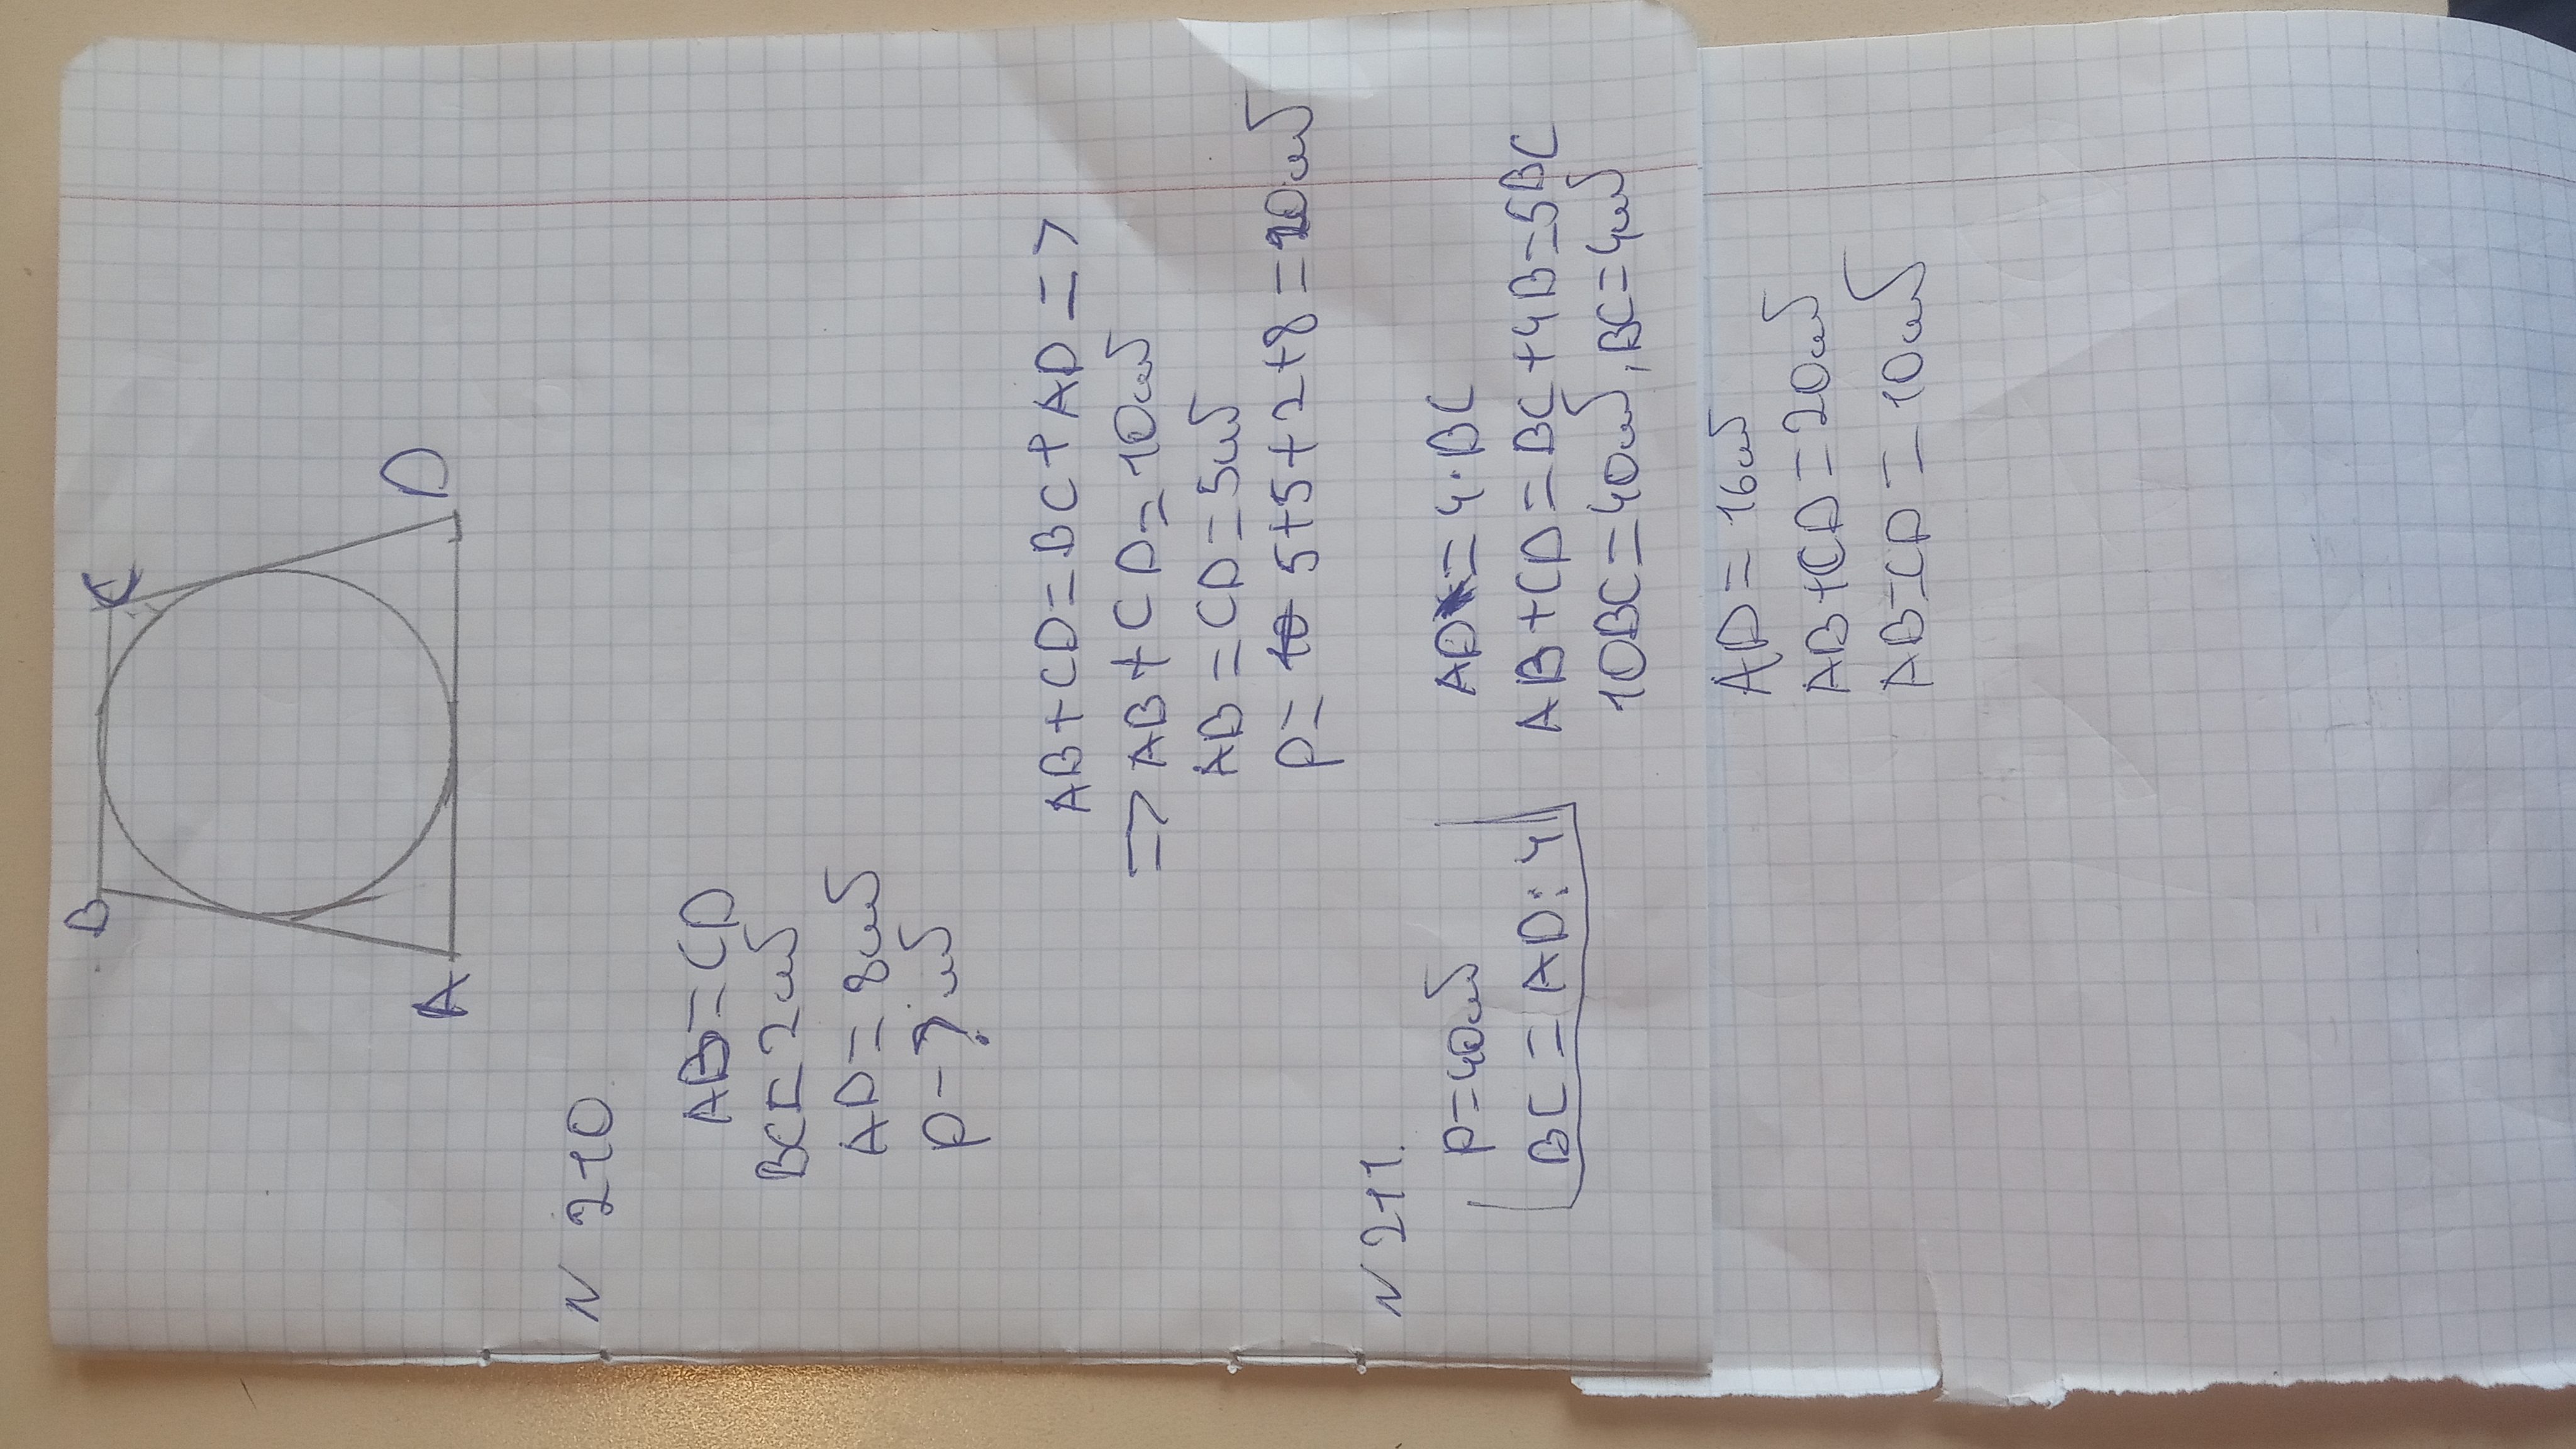 B C
A D
N 210.
AB=CD
BC=2սմ
AD=8սմ
P-?սմ
AB+CD=BC+AD=>
=> AB+CD=10սմ
AB=CD=5սմ
P= 10 5+5+2+8=20սմ
N 211.
P=40սմ
BC=AD:4
AD=4·BC
AB+CD=BC+4B=5BC
10BC=40սմ, BC=4սմ
AD=16սմ
AB+CD=20սմ
AB=CD=10սմ